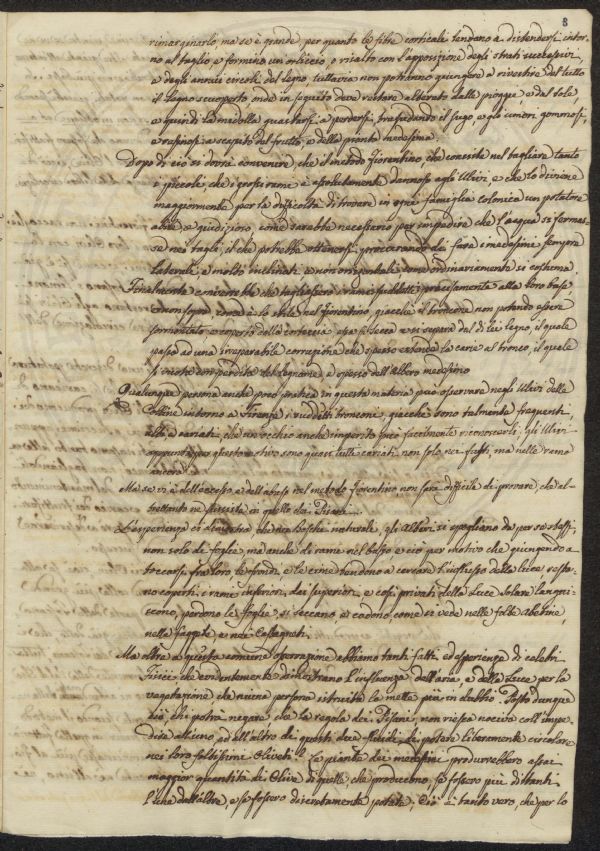 8
rimarginarlo, ma se è grande, per quanto le fibre corticali tendano a distendersi intor-
no al taglio, e formino un orliccio, o rialto con l'apposizione degli strati successivi,
e degli annui circoli del legno, tuttavia non potranno giungere a rivestire del tutto
il Legno scoperto, onde in seguito deve restare alterato dalle piogge, e dal sole
e quindi la midolla guastarsi, e perdersi, trasudando il sugo, e gli umori gommosi,
e resinosi a scapito del frutto, e della pianta medesima.
Dopo di ciò si dovrà convenire, che il metodo fiorentino, che consiste nel tagliare tanto
i piccoli, che i grossi rami è assolutamente dannoso agli Ulivi, e che lo diviene
maggiormente per la difficoltà di trovare in ogni famiglia colonica un potatore
abile, e giudizioso, come sarebbe necessario per impedire che l'acqua si fermas-
se nei tagli; il che potrebbe ottenersi, procurando di fare i medesimi sempre
laterali, e molto inclinati, e non orizontali come ordinariamente si costuma.
Finalmente converrebbe che tagliassero i rami suddetti precisamente alla loro base
e non sopra, come è lo stile nel fiorentino, giacchè il troncone non potendo essere
sormontato, e coperto dalla corteccia essa si secca, e si separa dal di lei legno, il quale
passa ad una irreparabile corruzione che spesso estende la carie al tronco, il quale
si vuota con perdita del legname, e spesso dell'Albero medesimo
Qualunque persona anche poco pratica in questa materia può osservare negli Ulivi delle
Colline intorno a Firenze i suddetti tronconi, giacchè sono talmente frequenti,
e cariati, che un occhio anche imperito può facilmente riconoscerli; gli Ulivi
appunto per questo motivo sono quasi tutti cariati non solo nei fusti, ma nelle rama
ancora.
Ma se vi è dell'eccesso, e dell'abuso nel metodo fiorentino non sarà difficile di provare, che al-
trettanto ne sussista in quello dei Pisani....
L'esperienza ci dimostra che nei boschi naturali, gli Alberi si spogliano da per se stessi
non solo di foglie, ma anche di rame nel basso, e ciò per motivo che giungendo a
toccarsi fra loro le frondi, e le cime tendono a cercare l'influsso della luce resta-
no coperti i rami inferiori dai superiori, e così privati della Luce Solare langui-
scono, perdono le foglie, si seccano, e cadono, come si vede nelle folte Abetine,
nelle faggete, e nei Castagneti.
Ma oltre a questa comune osservazione abbiamo tanti fatti, ed esperienze di celebri
Fisici che evidentemente dimostrano l'influenza dell'aria, e della Luce per la
vegetazione che niuna persona istruita la mette più in dubbio. Posto dunque
ciò, chi potrà negare che la regola dei Pisani, non riesca nociva coll'impe-
dire all'uno, ed all'altro di questi due fluidi di potere liberamente circolare
nei loro foltissimi Oliveti? Le piante dei medesimi produrrebbero assai
maggior quantità di Olive di quelle, che producono, se fossero più distanti
l'una dall'altra, e se fossero discretamente potate; Ciò è tanto vero, che per lo